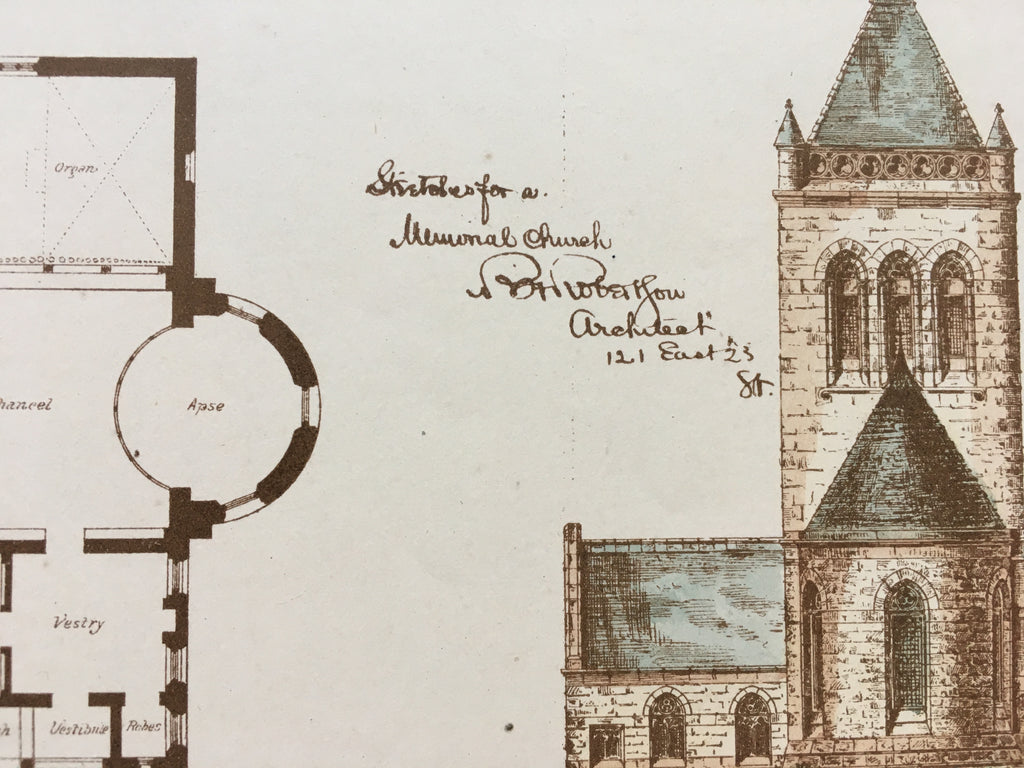 Organ
Sketches for a
Memorial Church
R H Robertson
Architect
121 East 23
St.
Apse
Vestry
Vestibule
Robes